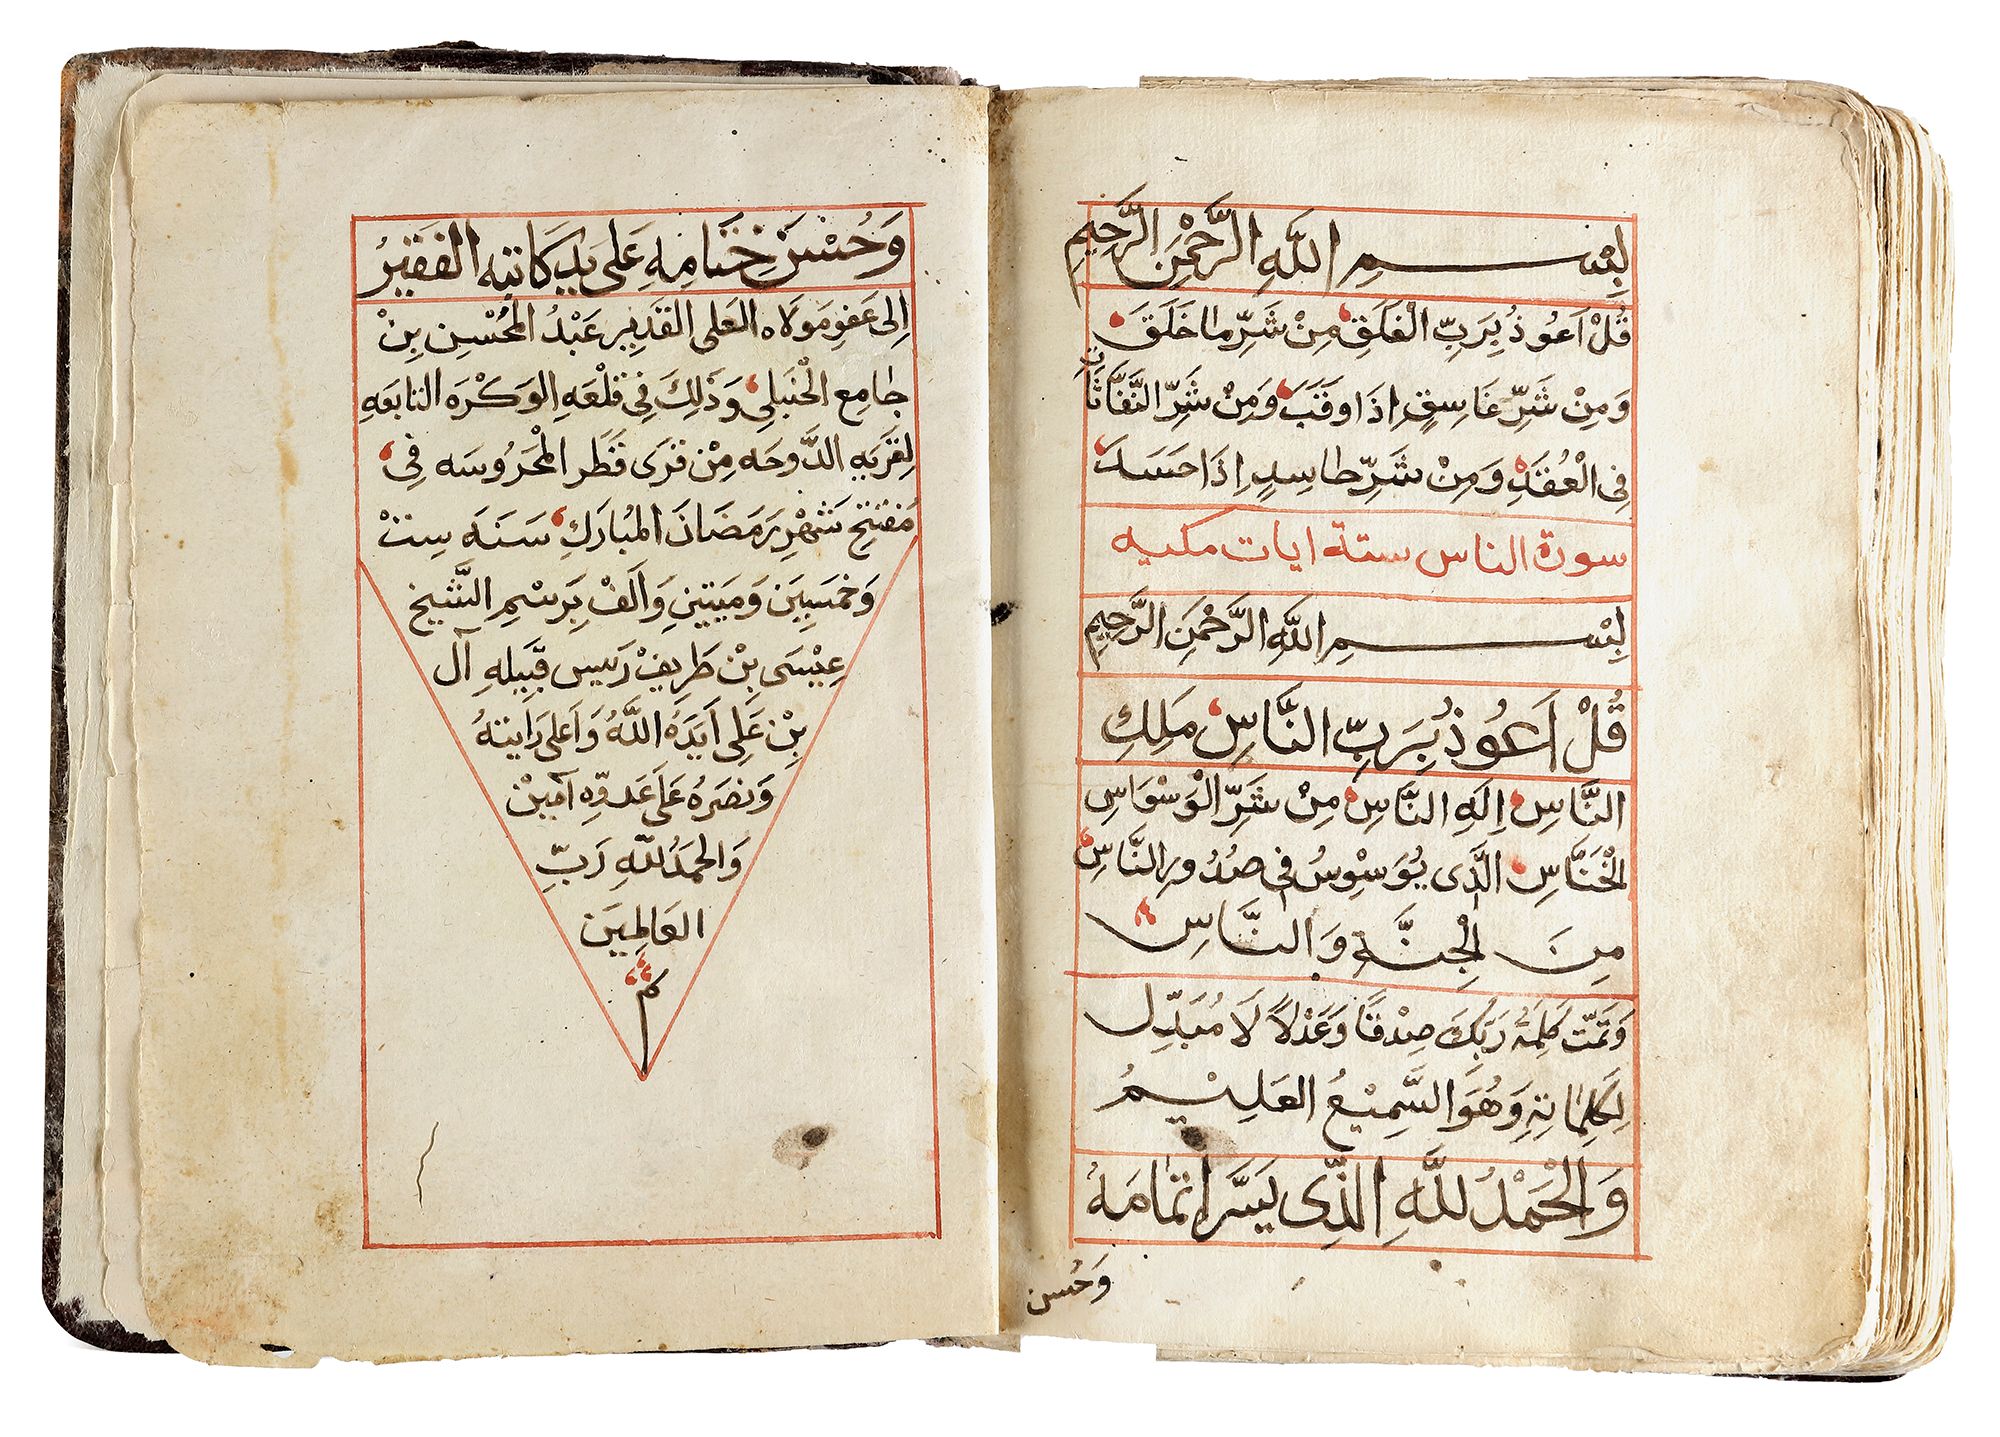 بِسْمِ اللَّهِ الرَّحْمَنِ الرَّحِيمِ
قُلْ اَعُوذُ بِرَبِّ الْفَلَقِ مِنْ شَرِّ مَا خَلَقَ
وَمِنْ شَرِّ غَاسِقٍ اِذَا وَقَبَ وَمِنْ شَرِّ النَّفَّاثَاتِ
فِي الْعُقَدِ وَمِنْ شَرِّ حَاسِدٍ اِذَا حَسَدَ
سورة الناس ستة ايات مكيه
بِسْمِ اللَّهِ الرَّحْمَنِ الرَّحِيمِ
قُلْ اَعُوذُ بِرَبِّ النَّاسِ مَلِكِ
النَّاسِ اِلَهِ النَّاسِ مِنْ شَرِّ الْوَسْوَاسِ
الْخَنَّاسِ الَّذِى يُوَسْوِسُ فِى صُدُورِ النَّاسِ
مِنَ الْجِنَّةِ وَالنَّاسِ
وَتَمَّتْ كَلِمَةُ رَبِّكَ صِدْقًا وَعَدْلًا لَا مُبَدِّلَ
لِكَلِمَاتِهِ وَهُوَ السَّمِيعُ الْعَلِيمُ
وَالْحَمْدُ لِلَّهِ الَّذِى يَسَّرَ اِتْمَامَهُ
وَحُسن
وَحُسْنَ خِتَامِهِ عَلَى يَدِ كَاتِبِهِ الْفَقِيرُ
اِلَى عَفْوِ مَوْلَاه الْعَلى الْقَدِيرِ عَبْدُ الْمُحْسِنِ بِنْ
جَامِع الْحَنْبَلِي وَذَلِكَ فِي قَلْعَهِ الوَكْرَه التابعَهِ
لِقَرْيَهِ الدَّوحَه مِنْ قُرَى قَطَر الْمَحْرُوسَه فِي
مُفْتَتحِ شَهْرِ رَمَضَانَ الْمُبَارَكِ سَنَة سِتْ
وَخَمْسِينَ وَمِيَتينِ وَاَلفْ بِرَسْمِ الشَّيخ
عِيْسَى بِنْ طَرِيفْ رَييس قَبِيلهِ آل
بِنْ عَلِي اَيَّدَهُ اللَّهُ وَاَعلى رَايتهُ
وَنصَرَهُ عَلَى عَدوِّه آمِينْ
وَالْحَمْدُ لِلَّهِ رَبِّ
الْعَالَمِينَ
م